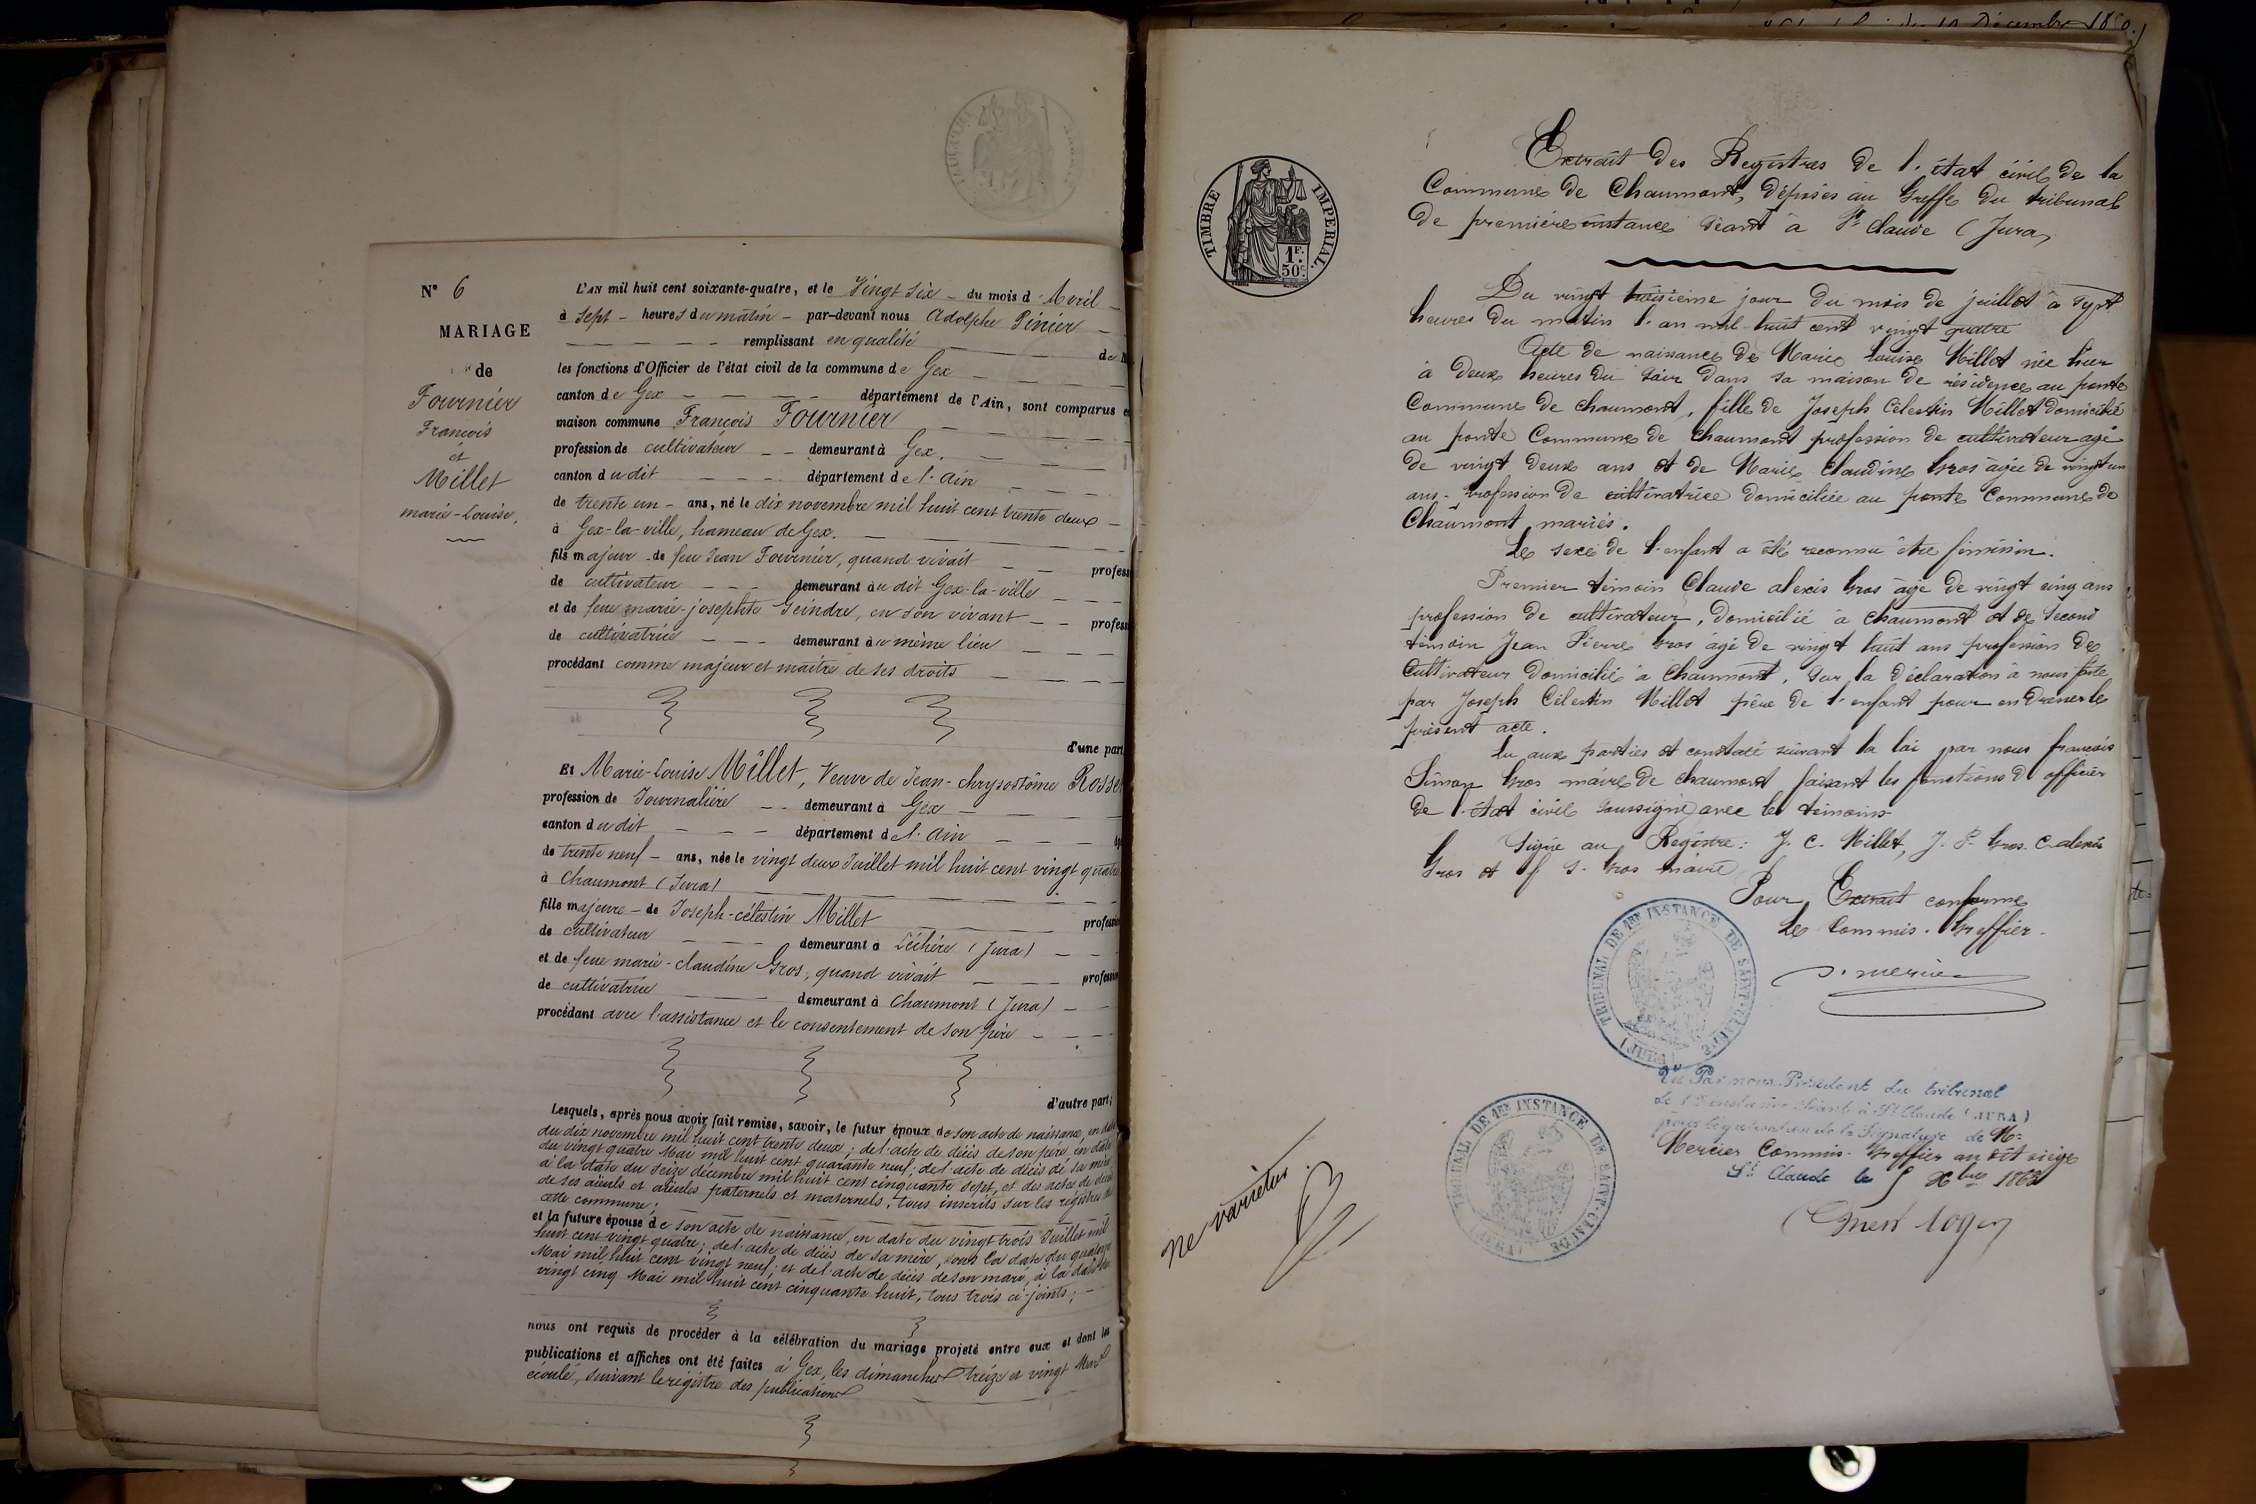 N° 6
MARIAGE
de
Fournier
François
et
Millet
marie-Louise.
L'AN mil huit cent soixante-quatre, et le Vingt six du mois d'Avril
à sept heures du matin par-devant nous Adolphe Pinier
remplissant en qualité de
les fonctions d'Officier de l'état civil de la commune de Gex
canton de Gex département de l'Ain, sont comparus en
maison commune François Fournier
profession de cultivateur demeurant à Gex.
canton du dit département de l'ain
de trente un ans, né le dix novembre mil huit cent trente deux
à Gex-la-ville, hameau de Gex.
fils majeur de feu Jean Fournier, quand vivait profess
de cultivateur demeurant au dit Gex-la-ville
et de feue marie-josephte Geindre, en son vivant profess
de cultivatrice demeurant au même lieu
procédant comme majeur et maître de ses droits
d'une part
Et Marie-Louise Millet, Veuve de Jean-chrysostôme Rosse
profession de Journalière demeurant à Gex
canton du dit département de l'ain
de trente neuf ans, née le vingt deux Juillet mil huit cent vingt quatre
à Chaumont (Jura)
fille majeure de Joseph-célestin Millet profession
de cultivateur demeurant à Léchère (Jura)
et de feue marie-claudine Gros, quand vivait profession
de cultivatrice demeurant à Chaumont (Jura)
procédant avec l'assistance et le consentement de son père
d'autre part;
Lesquels, après nous avoir fait remise, savoir, le futur époux de son acte de naissance, en date
du dix novembre mil huit cent trente deux; de l'acte de décès de son père, en date
du vingt quatre Mai mil huit cent quarante neuf; de l'acte de décès de sa mère
à la date du seize décembre mil huit cent cinquante sept, et des actes de décès
de ses aïeuls et aïeules paternels et maternels, tous inscrits sur les registres de
cette commune;
et la future épouse de son acte de naissance, en date du vingt trois Juillet mil
huit cent vingt quatre; de l'acte de décès de sa mère, sous la date du quatorze
Mai mil huit cent vingt neuf; et de l'acte de décès de son mari, à la date du
vingt cinq Mai mil huit cent cinquante huit, tous trois ci-joints;
nous ont requis de procéder à la célébration du mariage projeté entre eux et dont les
publications et affiches ont été faites à Gex, les dimanches treize et vingt Mars
écoulé, suivant le registre des publications
Décembre 18
TIMBRE IMPERIAL.
1F. 50c.
Extrait des Registres de l'état civil de la
Commune de Chaumont, déposés au Greffe du tribunal
de première instance séant à St Claude (Jura)
Du vingt troisième jour du mois de juillet à sept
heures du matin l'an mil huit cent vingt quatre
Acte de naissance de Marie Louise Millet née hier
à deux heures du soir dans sa maison de résidence au ponte
Commune de chaumont, fille de Joseph Célestin Millet domicilié
au ponte Commune de chaumont profession de cultivateur agé
de vingt deux ans et de Marie Claudine Gros âgée de vingt un
ans profession de cultivatrice domiciliée au ponte Commune de
Chaumont, mariés.
Le sexe de l'enfant a été reconnu être féminin.
Premier témoin Claude alexis Gros âgé de vingt cinq ans
profession de cultivateur, domicilié à chaumont et de second
témoin Jean Pierre Gros âgé de vingt huit ans profession de
Cultivateur domicilié à chaumont, sur la déclaration à nous faite
par Joseph Célestin Millet père de l'enfant pour en dresser le
présent acte.
Lu aux parties et constaté suivant la loi par nous françois
Simon Gros maire de chaumont faisant les fonctions d'officier
de l'état civil soussigné avec les témoins
Signé au Registre: J. C. Millet, J. P. Gros. C. alexis
Gros et f S. Gros maire
Pour Extrait conforme
Le Commis. Greffier
TRIBUNAL DE 1ERE INSTANCE DE SAINT-CLAUDE (JURA)
Vu Par nous Président du tribunal
de 1re instance séant à St Claude (JURA)
pour légalisation de la Signature de Mr
Mercier Commis Greffier au dit siège
St Claude le 5 Xbre 1863
TRIBUNAL DE 1ERE INSTANCE DE SAINT-CLAUDE (JURA)
ne varietur